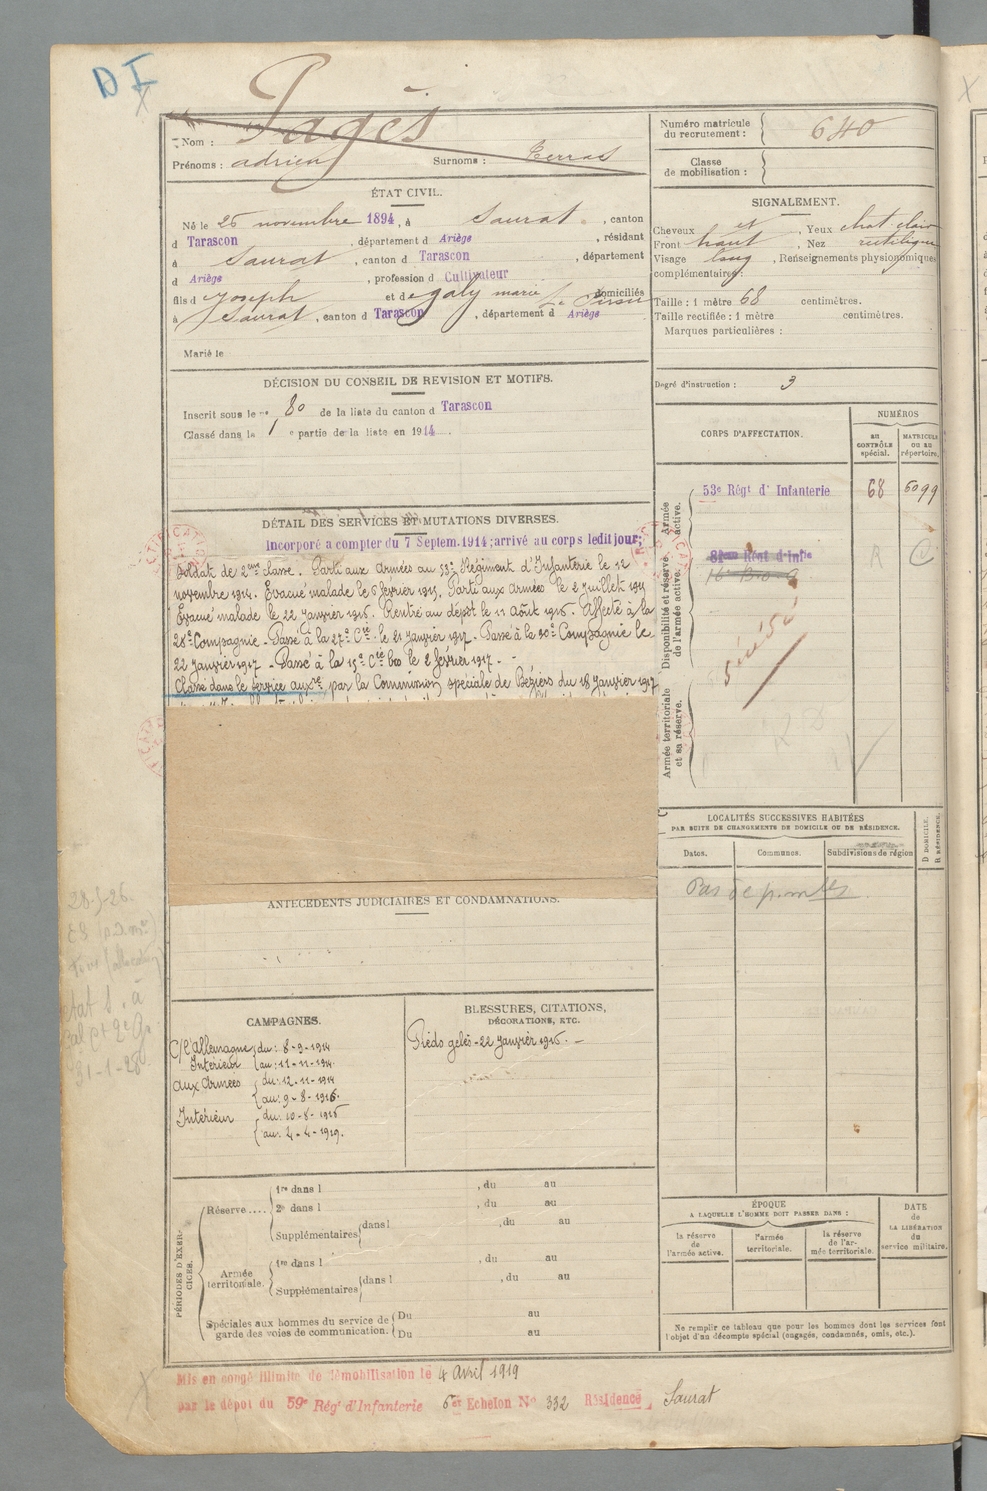 D I
Pagès
Nom :
Prénoms : adrien Surnoms : Terras
Numéro matricule
du recrutement : 640
Classe
de mobilisation :
ÉTAT CIVIL.
Né le 26 novembre 1894, à Saurat, canton
d Tarascon, département d Ariège, résidant
à Saurat, canton d Tarascon, département
d Ariège, profession d Cultivateur
fils d Joseph et de galy marie domiciliés
à Saurat, canton d Tarascon, département d Ariège
Marié le
SIGNALEMENT.
Cheveux et, Yeux chat. clair
Front haut, Nez rectiligne
Visage long, Renseignements physionomiques
complémentaires :
Taille : 1 mètre 68 centimètres.
Taille rectifiée : 1 mètre centimètres.
Marques particulières :
Degré d'instruction : 3
DÉCISION DU CONSEIL DE REVISION ET MOTIFS.
Inscrit sous le n° 80 de la liste du canton d Tarascon
Classé dans la 1 e partie de la liste en 1914
CORPS D'AFFECTATION.
NUMÉROS
au
CONTRÔLE
spécial.
MATRICULE
ou au
répertoire.
Armée
active.
53e Régt d'Infanterie 68 6099
Disponibilité et réserve
de l'armée active.
81eme Régt d'Infie
R
Armée territoriale
et sa réserve.
DÉTAIL DES SERVICES ET MUTATIONS DIVERSES.
Incorporé à compter du 7 Septem. 1914; arrivé au corps ledit jour;
Soldat de 2eme classe. Parti aux armées au 53e Régiment d'Infanterie le 12
novembre 1914. Evacué malade le 6 février 1915. Parti aux Armées le 2 juillet 1915
Evacué malade le 22 Janvier 1916. Rentré au dépôt le 11 Août 1916. Affecté à la
28e Compagnie - Passé à la 27e Cie le 21 Janvier 1917 - Passé à la 30e Compagnie le
22 Janvier 1917 - Passé à la 15e Cie bis le 2 février 1917. -
Classé dans le service auxre par la Commission spéciale de Béziers du 18 Janvier 1917
LOCALITÉS SUCCESSIVES HABITÉES
PAR SUITE DE CHANGEMENTS DE DOMICILE OU DE RÉSIDENCE.
Dates.
Communes.
Subdivisions de région
D DOMICILE.
R RÉSIDENCE.
Pas de
28-5-26.
31-1-28
ANTÉCÉDENTS JUDICIAIRES ET CONDAMNATIONS.
CAMPAGNES.
C/ l'Allemagne du : 8-9-1914
Intérieur au : 11-11-1914.
aux Armées du : 12-11-1914
au : 9-8-1916.
Intérieur du : 10-8-1916
au : 4-4-1919.
BLESSURES, CITATIONS,
DÉCORATIONS, ETC.
Pieds gelés - 22 Janvier 1916. -
PÉRIODES D'EXERCICES.
Réserve....
1re dans l , du au
2e dans l , du au
Supplémentaires dans l , du au
Armée
territoriale.
1re dans l , du au
Supplémentaires dans l , du au
Spéciales aux hommes du service de
garde des voies de communication.
Du au
Du au
ÉPOQUE
A LAQUELLE L'HOMME DOIT PASSER DANS :
la réserve
de
l'armée active.
l'armée
territoriale.
la réserve
de l'ar-
mée territoriale.
DATE
de
LA LIBÉRATION
du
service militaire.
Ne remplir ce tableau que pour les hommes dont les services font
l'objet d'un décompte spécial (engagés, condamnés, omis, etc.).
Mis en congé illimité de démobilisation le 4 Avril 1919
par le dépôt du 59e Régt d'Infanterie 6er Echelon N° 332 Résidence Saurat